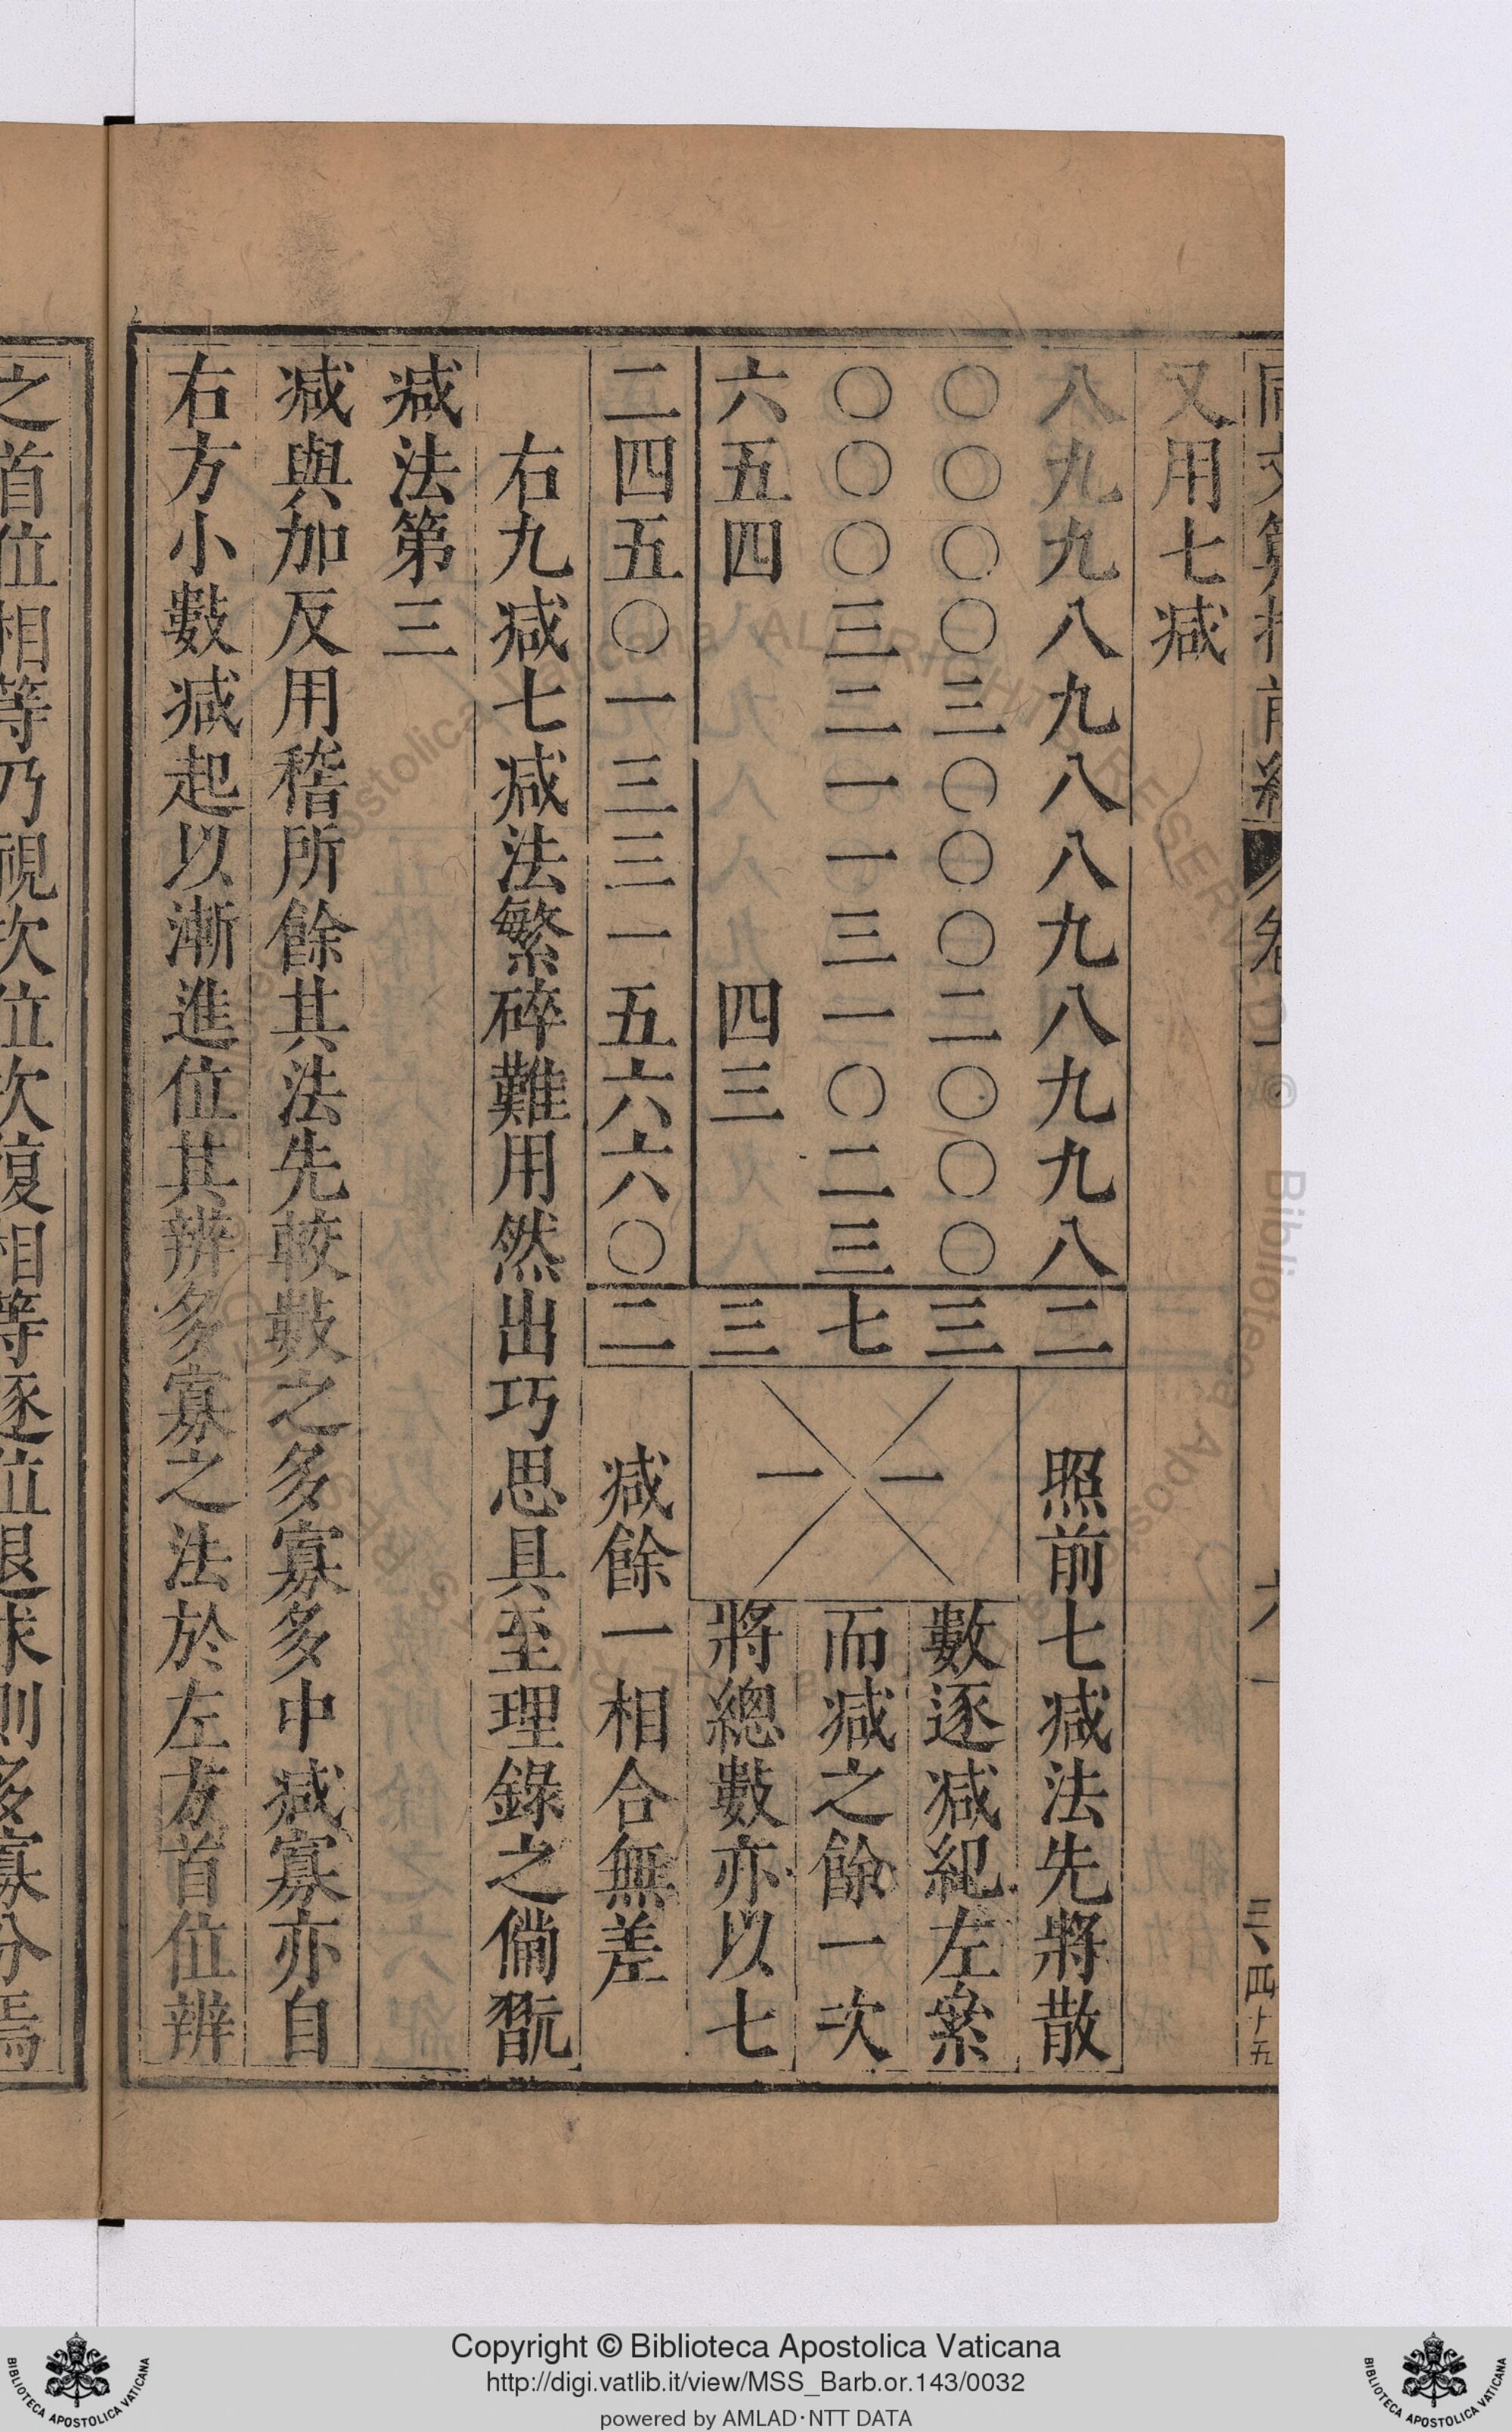 又用七减
八九九八九八八九八九九八二
〇〇〇〇三〇〇〇二〇〇〇三
〇〇〇三二一一三一〇二三七
六五四
四三
三
二四五〇一三三一五六六〇二
一
一
照前七减法先將散
數逐减紀左絫
而减之餘一次
將總數亦以七
减餘一相合無差
右九减七减法繁碎難用然出巧思具至理錄之備翫
减法第三
减與加反用稽所餘其法先較數之多寡多中减寡亦自
右方小數减起以漸進位其辨多寡之法於左方首位辨
六
三
四十五
之首位相等乃視次位次復相等逐位退求則多寡分焉
Copyright © Biblioteca Apostolica Vaticana
http://digi.vatlib.it/view/MSS_Barb.or.143/0032
powered by AMLAD·NTT DATA
BIBLIOTECA APOSTOLICA VATICANA
BIBLIOTECA APOSTOLICA VATICANA